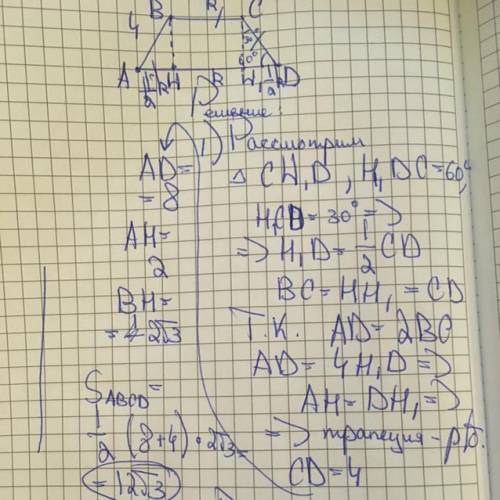 B
C
4
A
H
H₁
D
60°
Решение:
1) Рассмотрим
△ CH₁D, H₁DC=60°,
H₁CD=30° =>
=> H₁D= 1/2 CD
BC=HH₁=CD
Т.К. AD=2BC
AD=4H₁D =>
AH=DH₁ =>
=> трапеция - р/б.
CD=4
AD=
=8
AH=
2
BH=
=2√3
S ABCD =
1/2 (8+4)·2√3=
=12√3